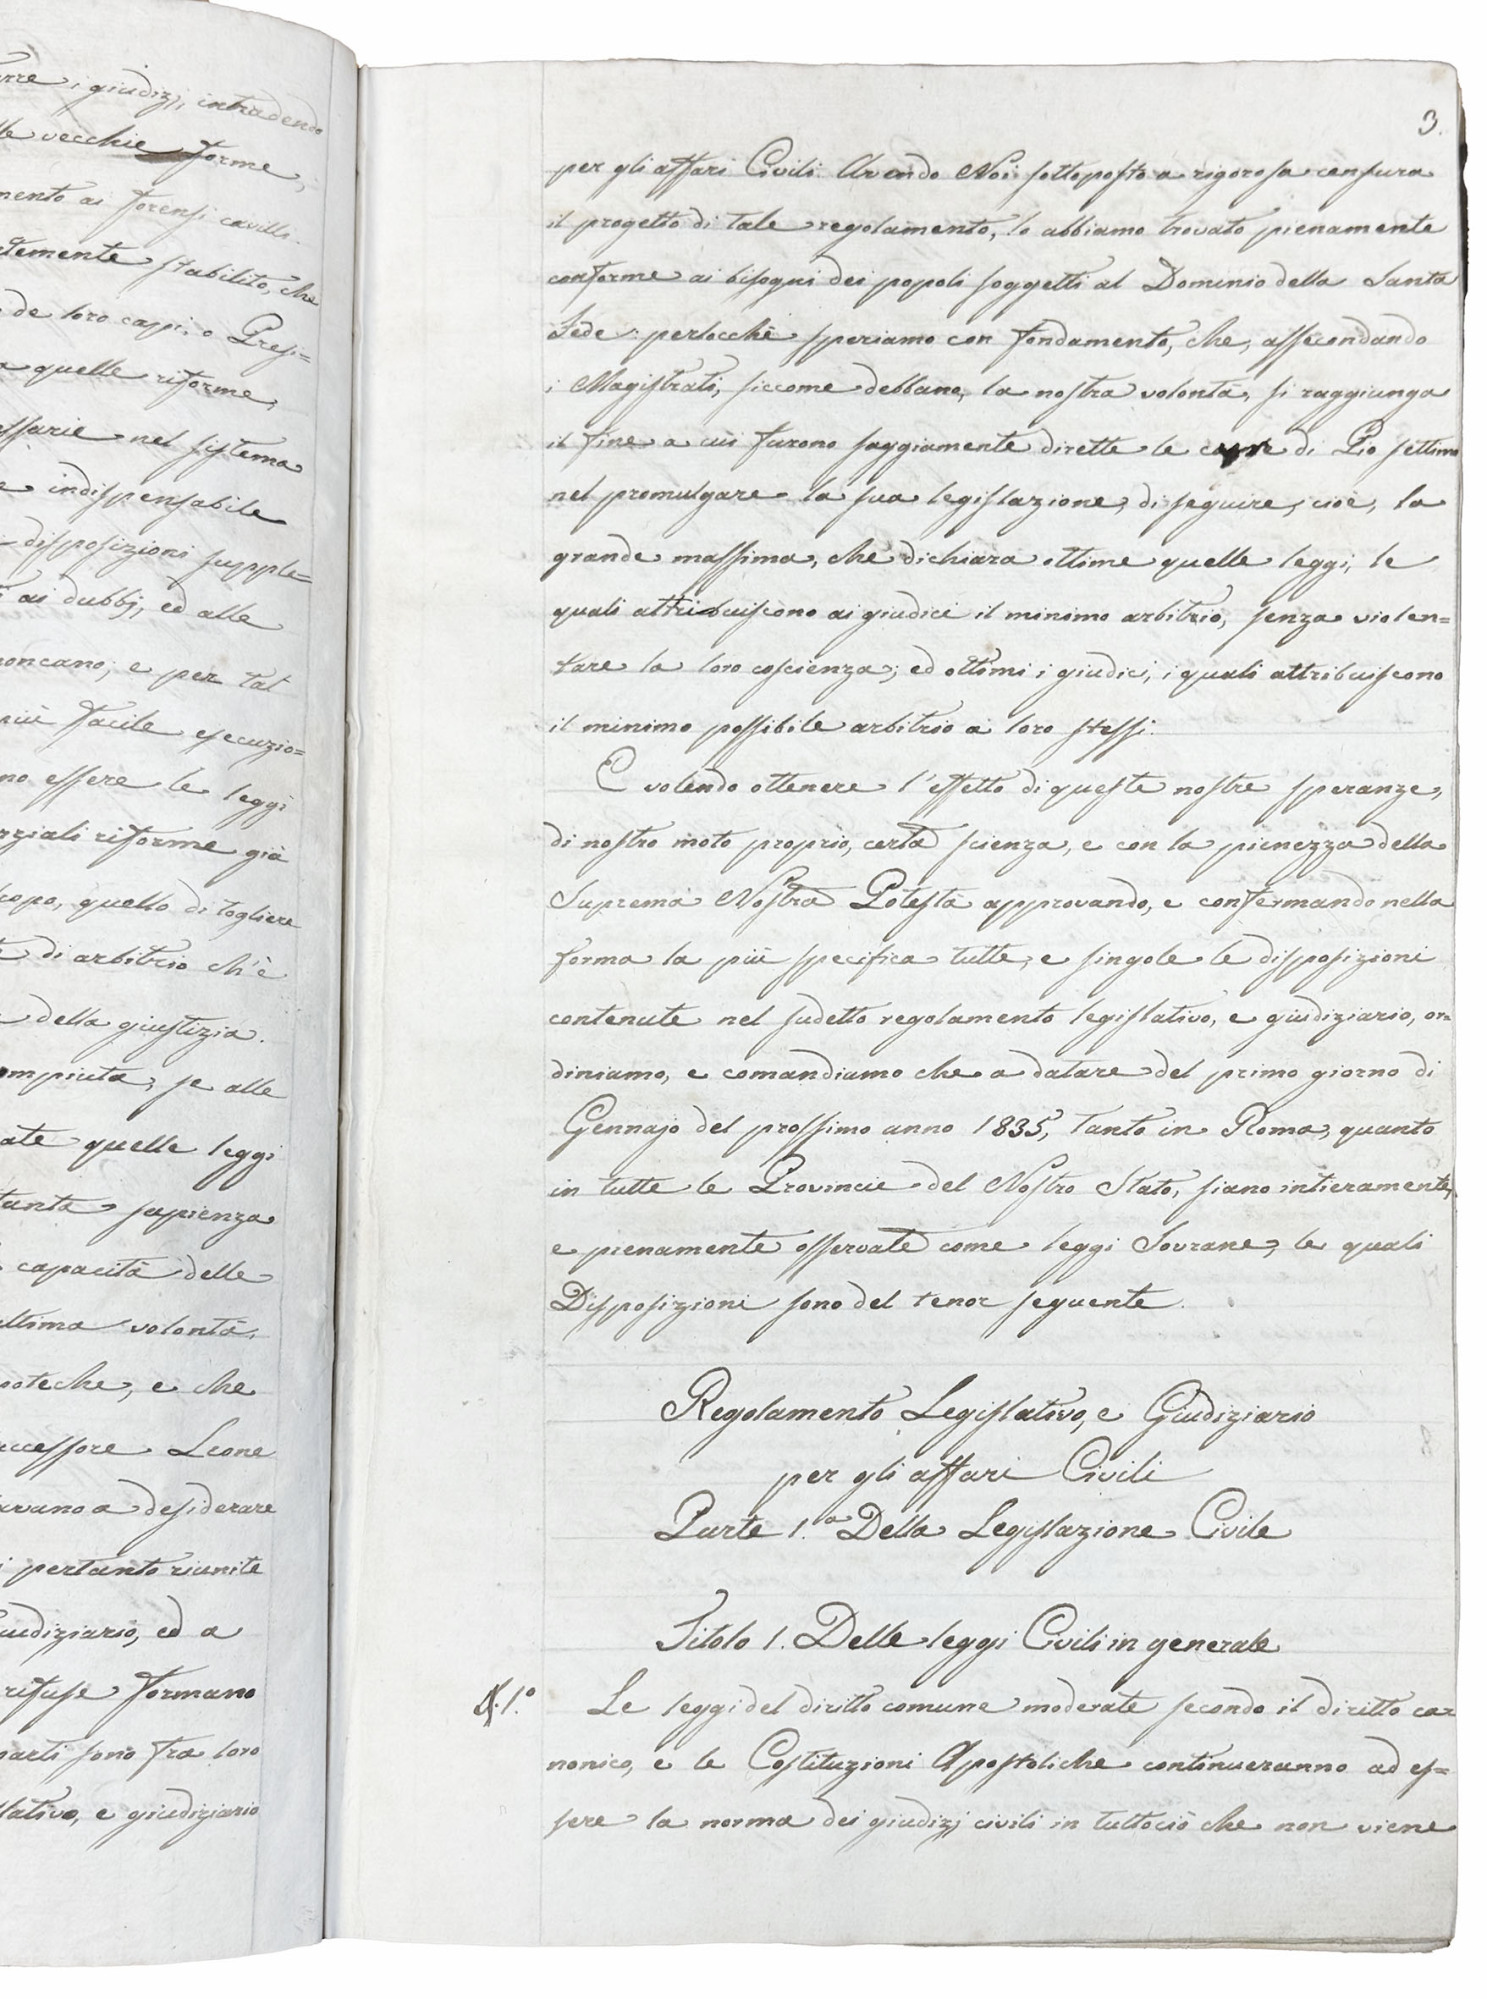 i giudizj, intradendo
vecchie forme,
ai forensi cavilli.
stabilito, che
de loro capi, o Presi=
quelle riforme,
nel sistema
indispensabile
disposizioni supple=
ai dubbj, ed alle
e per tal
più facile esecuzio=
essere le leggi
riforme già
quello di togliere
di arbitrio ch'è
della giustizia.
se alle
quelle leggi
sapienza
capacità delle
volontà,
e che
Leone
a desiderare
pertanto riunite
ed a
formano
sono fra loro
e giudiziario
3.
per gli affari Civili. Avendo Noi sottoposto a rigorosa censura
il progetto di tale regolamento, lo abbiamo trovato pienamente
conforme ai bisogni dei popoli soggetti al Dominio della Santa
Sede: perlocchè speriamo con fondamento, che, assecondando
i Magistrati, siccome debbano, la nostra volontà, si raggiunga
il fine a cui furono saggiamente dirette le cure di Pio settimo
nel promulgare la sua legislazione, di seguire, cioè, la
grande massima, che dichiara ottime quelle leggi, le
quali attribuiscono ai giudici il minimo arbitrio, senza violen=
tare la loro coscienza; ed ottimi i giudici, i quali attribuiscono
il minimo possibile arbitrio a loro stessi.
E volendo ottenere l'effetto di queste nostre speranze,
di nostro moto proprio, certa scienza, e con la pienezza della
Suprema Nostra Potestà approvando, e confermando nella
forma la più specifica tutte, e singole le disposizioni
contenute nel sudetto regolamento legislativo, e giudiziario, or=
diniamo, e comandiamo che a datare del primo giorno di
Gennajo del prossimo anno 1835, tanto in Roma, quanto
in tutte le Provincie del Nostro Stato, siano intieramente,
e pienamente osservate come leggi Sovrane, le quali
Disposizioni sono del tenor seguente.
Regolamento Legislativo, e Giudiziario
per gli affari Civili
Parte 1.a Della Legislazione Civile
Titolo 1. Delle leggi Civili in generale
§. 1.° Le leggi del diritto comune moderate secondo il diritto ca=
nonico, e le Costituzioni Apostoliche continueranno ad es=
sere la norma dei giudizj civili in tuttociò che non viene